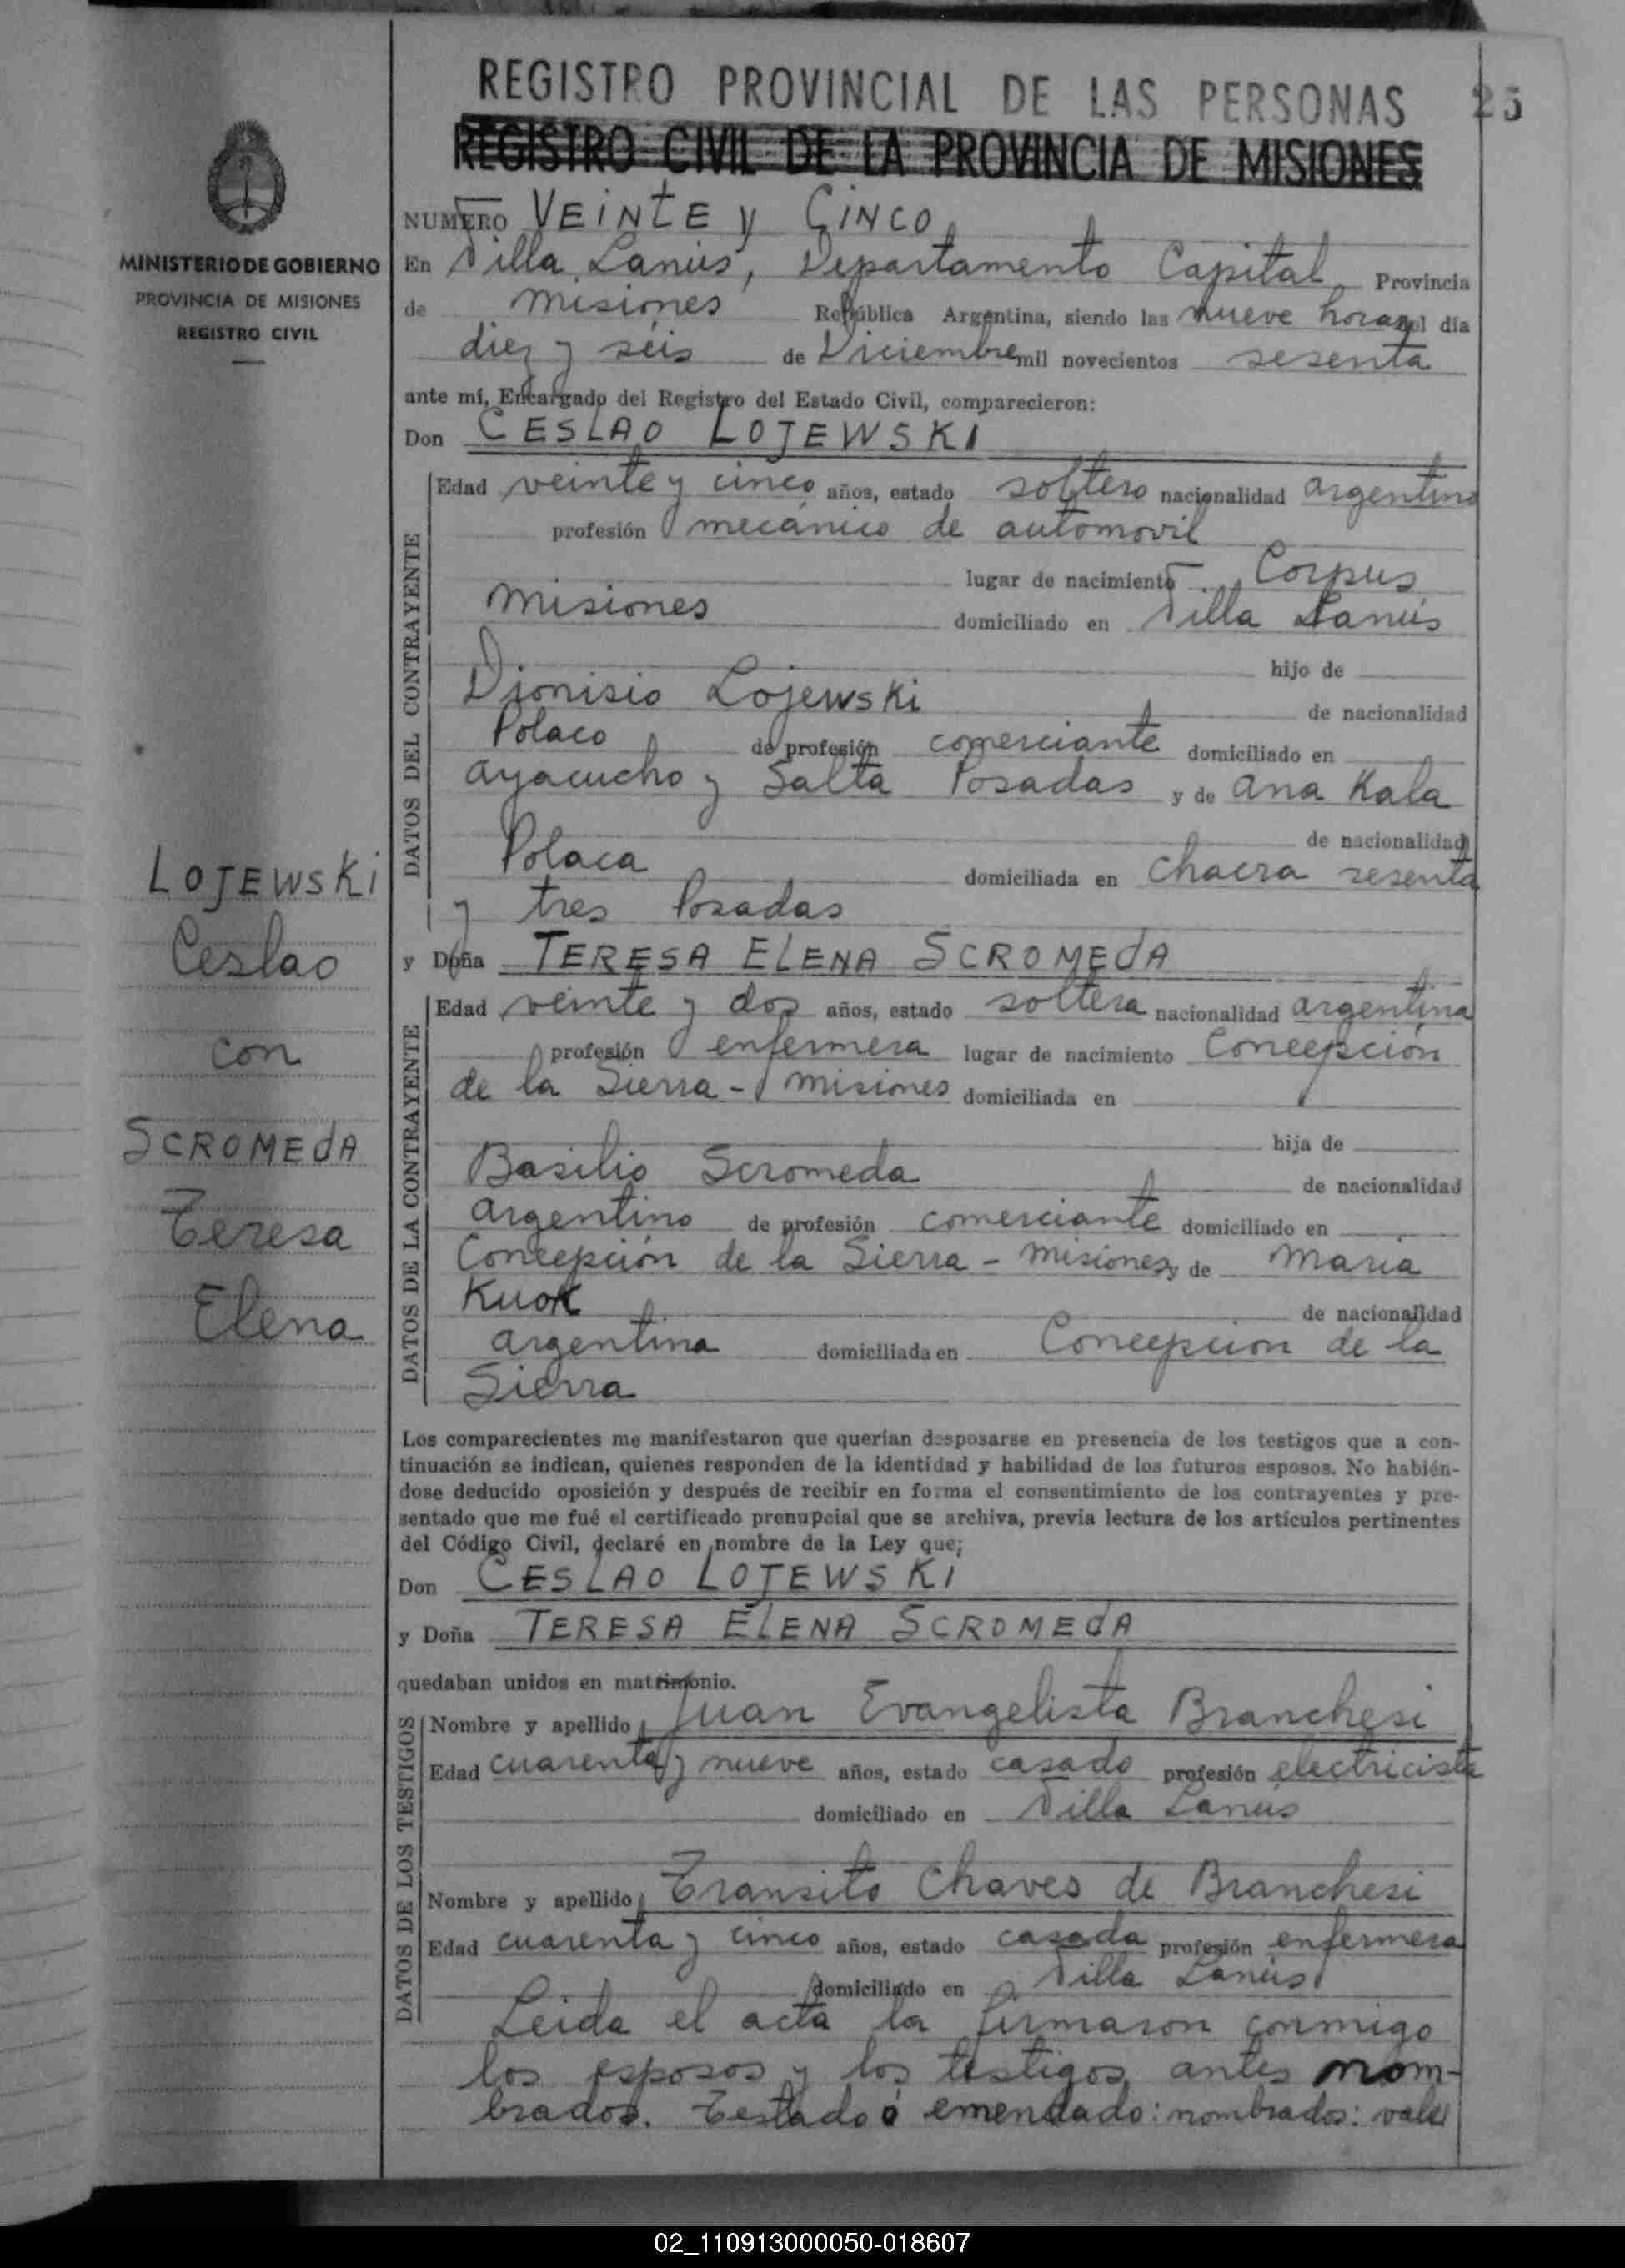 REGISTRO PROVINCIAL DE LAS PERSONAS 25
REGISTRO CIVIL DE LA PROVINCIA DE MISIONES
MINISTERIO DE GOBIERNO
PROVINCIA DE MISIONES
REGISTRO CIVIL
NUMERO VEINTE y CINCO
En Villa Lanús, Departamento Capital Provincia
de Misiones República Argentina, siendo las nueve horas del día
diez y seis de Diciembre mil novecientos sesenta
ante mí, Encargado del Registro del Estado Civil, comparecieron:
Don CESLAO LOJEWSKI
DATOS DEL CONTRAYENTE
Edad veinte y cinco años, estado soltero nacionalidad argentino
profesión mecánico de automovil
lugar de nacimiento Corpus
Misiones domiciliado en Villa Lanús
hijo de
Dionisio Lojewski de nacionalidad
Polaco de profesión comerciante domiciliado en
Ayacucho y Salta Posadas y de Ana Kala
de nacionalidad
Polaca domiciliada en Chacra sesenta
y tres Posadas
LOJEWSKI
Ceslao
con
SCROMEdA
Teresa
Elena
y Doña TERESA ELENA SCROMEdA
DATOS DE LA CONTRAYENTE
Edad veinte y dos años, estado soltera nacionalidad argentina
profesión enfermera lugar de nacimiento Concepción
de la Sierra - Misiones domiciliada en
hija de
Basilio Scromeda de nacionalidad
argentino de profesión comerciante domiciliado en
Concepción de la Sierra - Misiones y de Maria
Kuok de nacionalidad
argentina domiciliada en Concepcion de la
Sierra
Los comparecientes me manifestaron que querían desposarse en presencia de los testigos que a con-
tinuación se indican, quienes responden de la identidad y habilidad de los futuros esposos. No habién-
dose deducido oposición y después de recibir en forma el consentimiento de los contrayentes y pre-
sentado que me fué el certificado prenupcial que se archiva, previa lectura de los artículos pertinentes
del Código Civil, declaré en nombre de la Ley que;
Don CESLAO LOJEWSKI
y Doña TERESA ELENA SCROMEdA
quedaban unidos en matrimonio.
DATOS DE LOS TESTIGOS
Nombre y apellido Juan Evangelista Branchesi
Edad cuarenta y nueve años, estado casado profesión electricista
domiciliado en Villa Lanus
Nombre y apellido Transito Chaves de Branchesi
Edad cuarenta y cinco años, estado casada profesión enfermera
domiciliado en Villa Lanús
Leida el acta la firmaron conmigo
los esposos y los testigos antes nom-
brados. Testado o emendado: nombrados: vale
02_110913000050-018607